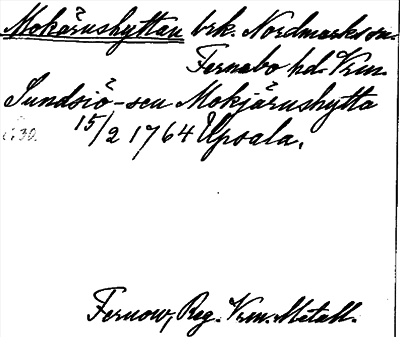 Mokärnshyttan brk. Nordmarks sn.
Fernebo hd. Vrm.
Sundsiö-seu Mokjärnshytta
15/2 1764 Upsala.
Fernow, Reg. Vrm. Metall.